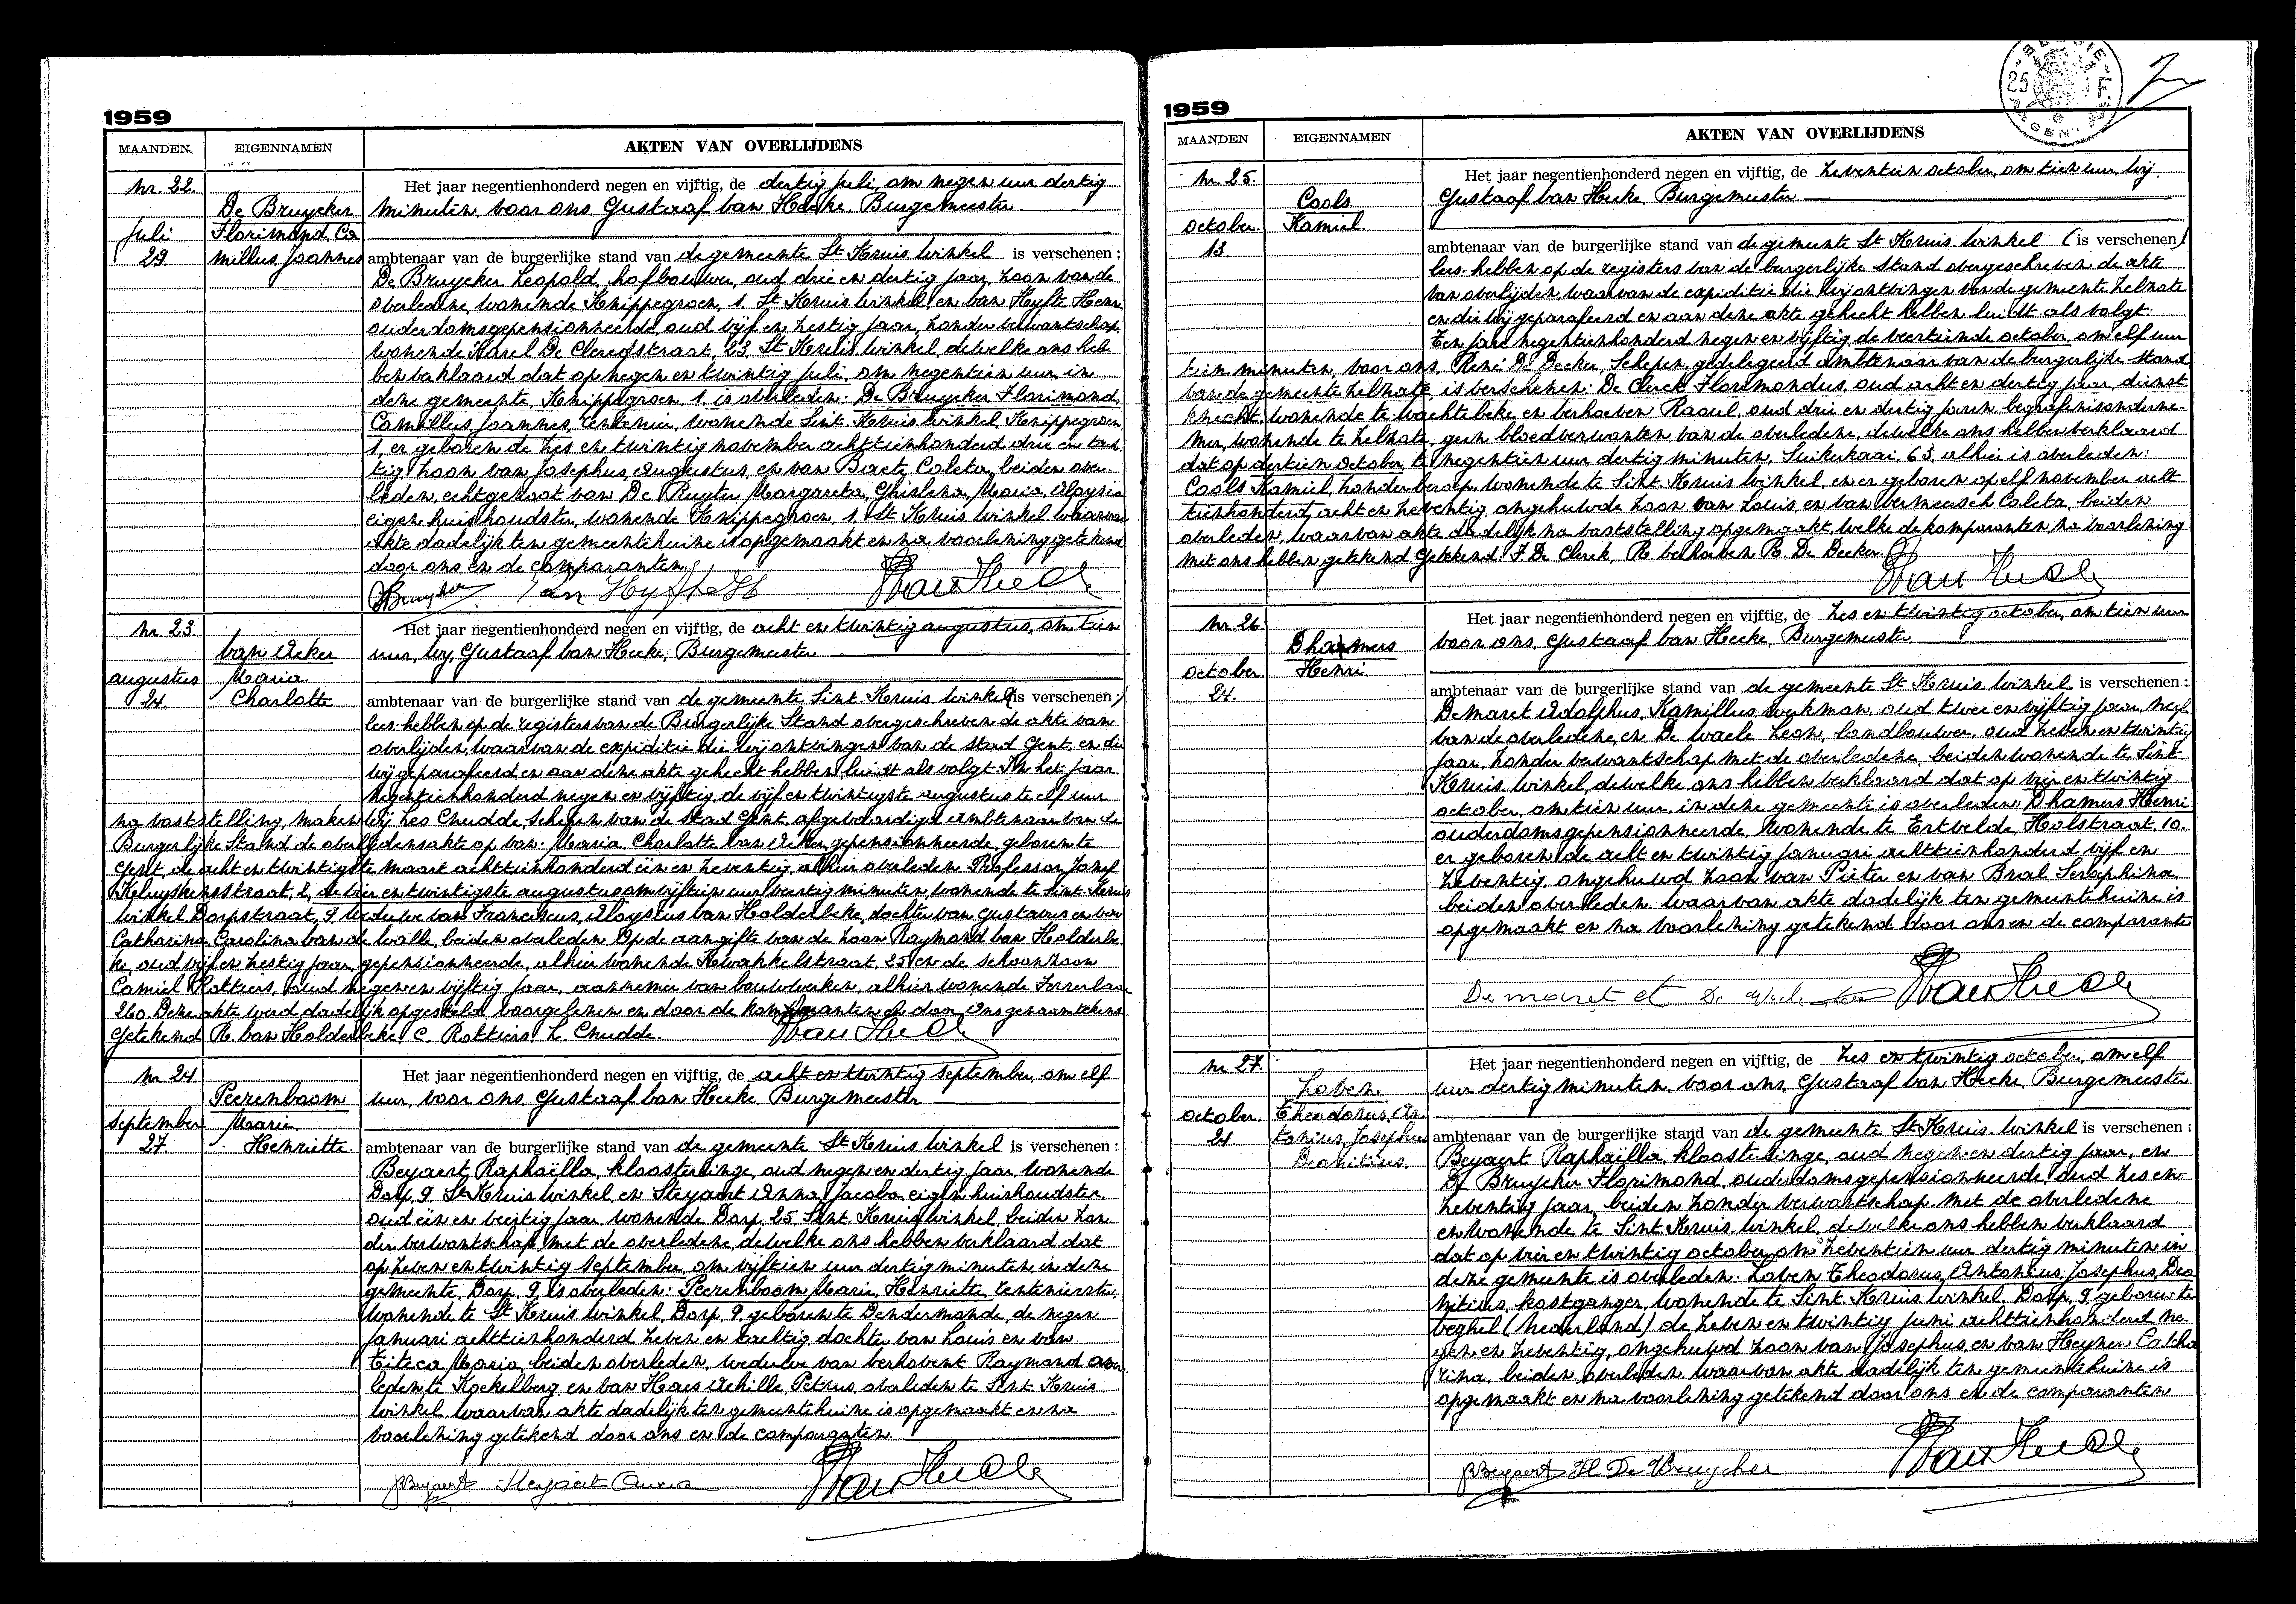 1959
MAANDEN. EIGENNAMEN AKTEN VAN OVERLIJDENS
Nr. 22. Het jaar negentienhonderd negen en vijftig, de dertig Juli, om negen uur dertig
De Bruycker minuten, voor ons Gustaaf van Hecke, Burgemeester
Juli Florimond, Ca
29 millus Joannes ambtenaar van de burgerlijke stand van de gemeente St Kruis Winkel is verschenen :
De Bruycker Leopold, hofbouwer, oud drie en dertig jaar, zoon van de
overledene, wonende Knippegroen, 1, St Kruis Winkel, en Van Hyfte Henri
ouderdomsgepensionneerde, oud vijf en zestig jaar, zonder verwantschap
wonende Karel De Clercqstraat, 23, St Kruis Winkel, dewelke ons heb
ben verklaard dat op negen en twintig Juli, om negentien uur, in
deze gemeente, Knippegroen 1, is overleden: De Bruycker Florimond,
Camillus, Joannes, rentenier, wonende Sint-Kruis-Winkel Knippegroen
1, er geboren de zes en twintig november achttienhonderd drie en tach
tig, zoon van Josephus, Augustus, en van Baete Coleta, beiden over
leden, echtgenoot van De Ruyter Margareta, Ghislena, Maria, Aloysia
eigen huishoudster, wonende Knippegroen, 1, St Kruis Winkel waarvan
akte dadelijk ten gemeentehuize is opgemaakt en na voorlezing getekend
door ons en de comparanten.
Van Hyfte H
Nr. 23 Het jaar negentienhonderd negen en vijftig, de acht en twintig augustus, om tien
Van Acker uur, wij, Gustaaf van Hecke, Burgemeester
augustus Maria
24 Charlotte ambtenaar van de burgerlijke stand van de gemeente Sint-Kruis-Winkel (is verschenen :)
lees: hebben op de registers van de Burgerlijke Stand overgeschreven de akte van
overlijden, waarvan de expeditie die wij ontvingen van de stad Gent, en die
wij geparafeerd en aan deze akte gehecht hebben luidt als volgt: In het jaar
negentienhonderd negen en vijftig, de vijf en twintigste augustus te elf uur
na vaststelling, maken wij Leo Chudde, schepen van de stad Gent, afgevaardigd ambtenaar van de
Burgerlijke Stand de overlijdensakte op van: Maria, Charlotte Van Acker, gepensionneerde, geboren te
Gent, de acht en twintigste maart achttienhonderd één en zeventig, alhier overleden Professor Jozef
Kluyskensstraat, 2, de vier en twintigste augustus om vijftien uur veertig minuten, wonende te Sint Kruis
Winkel Dorpstraat, 9, weduwe van Franciscus, Aloysius van Holderbeke, dochter van Gustavus en van
Catharina Carolina van de Walle, beiden overleden. Op de aangifte van de zoon Raymond van Holderbe
ke, oud vijf en zestig jaar, gepensionneerde, alhier wonende Kwakkelstraat, 25, en de schoonzoon
Camiel Rottiers, oud negen en vijftig jaar, aannemer van bouwwerken, alhier wonende
260. Deze akte werd dadelijk opgesteld, voorgelezen en door de komparanten en door Ons genaamtekend.
Getekend R. van Holderbeke, C. Rottiers, L. Chudde.
Nr 24 Het jaar negentienhonderd negen en vijftig, de acht en twintig september, om elf
Peerenboom uur, voor ons, Gustaaf van Hecke, Burgemeester
september Marie
27. Henriette. ambtenaar van de burgerlijke stand van de gemeente St Kruis Winkel is verschenen :
Beyaert Raphaëlla, kloosterlinge, oud negen en dertig jaar, wonende
Dorp, 9, St Kruis Winkel, en Steyaert Anna, Jacoba, eigen huishoudster
oud één en veertig jaar, wonende Dorp, 25, Sint-Kruis Winkel, beiden zon
der verwantschap met de overledene, dewelke ons hebben verklaard dat
op zeven en twintig september, om vijftien uur dertig minuten, in deze
gemeente, Dorp, 9, is overleden: Peerenboom Marie, Henriette, rentenierster,
wonende te St Kruis Winkel, Dorp, 9, geboren te Dendermonde, de negen
januari achttienhonderd zeven en tachtig, dochter van Louis en van
Titeca Maria, beiden overleden, weduwe van Verhovent Raymond over
leden te Koekelberg, en van Haes Achille Petrus, overleden te Sint-Kruis
Winkel waarvan akte dadelijk ten gemeentehuize is opgemaakt en na
voorlezing getekend door ons en de comparanten
RBeyaert Steyaert Anna
1959
MAANDEN EIGENNAMEN AKTEN VAN OVERLIJDENS
Nr. 25. Het jaar negentienhonderd negen en vijftig, de zeventien october, om tien uur, wij
Cools Gustaaf van Hecke, Burgemeester
october. Kamiel.
13 ambtenaar van de burgerlijke stand van de gemeente St Kruis Winkel (is verschenen)
lees: hebben op de registers van de burgerlijke stand overgeschreven de akte
van overlijden, waarvan de expeditie die wij ontvingen van de gemeente Zelzate
en die wij geparafeerd en aan deze akte gehecht hebben luidt als volgt:
Ten jare negentienhonderd negen en vijftig de veertiende october, om elf uur
tien minuten, voor ons, René De Decker, Schepen, gedelegeerd ambtenaar van de burgerlijke stand
van de gemeente Zelzate, is verschenen: De Clerck Florimondus, oud acht en dertig jaar, dienst
knecht, wonende te Wachtebeke en Verhoeven Raoul, oud drie en dertig jaren, begrafenisonderne-
mer, wonende te Zelzate, geen bloedverwanten van de overledene, dewelke ons hebben verklaard
dat op dertien october, te negentien uur dertig minuten, Suikerkaai, 63, alhier is overleden:
Cools Kamiel, zonder beroep, wonende te Sint Kruis Winkel, en er geboren op elf november acht
tienhonderd acht en zeventig, ongehuwde zoon van Louis en van Vermeersch Coleta, beiden
overleden, waarvan akte dadelijk na vaststelling opgemaakt, welke de komparanten na voorlezing
met ons hebben getekend. Getekend: F. De Clerck, R. Verhoeven, R. De Decker.
Nr. 26. Het jaar negentienhonderd negen en vijftig, de zes en twintig october, om tien uur
Dhamers voor ons, Gustaaf van Hecke, Burgemeester.
october. Henri
24. ambtenaar van de burgerlijke stand van de gemeente St Kruis-Winkel is verschenen :
Demaret Adolphus, Kamillus, werkman, oud twee en vijftig jaar, neef
van de overledene, en De Waele Leon, landbouwer, oud zeven en twintig
jaar, zonder verwantschap met de overledene, beiden wonende te Sint-
Kruis Winkel, dewelke ons hebben verklaard dat op vier en twintig
october, om tien uur, in deze gemeente is overleden: Dhamers Henri
ouderdomsgepensionneerde, wonende te Ertvelde, Holstraat, 10.
er geboren de acht en twintig januari achttienhonderd vijf en
zeventig, ongehuwd zoon van Pieter en van Bral Seraphina
beiden overleden waarvan akte dadelijk ten gemeentehuize is
opgemaakt en na voorlezing getekend door ons en de comparante
Demaret
Nr 27. Het jaar negentienhonderd negen en vijftig, de zes en twintig october, om elf
Loven uur dertig minuten, voor ons, Gustaaf van Hecke, Burgemeester
october. Theodorus, An
24. tonius, Josephus ambtenaar van de burgerlijke stand van de gemeente St Kruis-Winkel is verschenen :
Deonitius. Beyaert Raphaëlla, kloosterlinge, oud negen en dertig jaar, en
De Bruycker Florimond, ouderdomsgepensionneerde, oud zes en
zeventig jaar, beiden zonder verwantschap met de overledene
en wonende te Sint Kruis-Winkel, dewelke ons hebben verklaard
dat op vier en twintig october, om zeventien uur dertig minuten in
deze gemeente is overleden: Loven Theodorus, Antonius, Josephus, Deo
nitius, kostganger, wonende te Sint-Kruis Winkel, Dorp, 9, geboren te
Veghel (Nederland) de zeven en twintig juni achttienhonderd ne
gen en zeventig, ongehuwd zoon van Josephus, en van Heynen Catha
rina, beiden overleden waarvan akte dadelijk ten gemeentehuize is
opgemaakt en na voorlezing getekend door ons en de comparanten
RBeyaert Fl De Bruycker